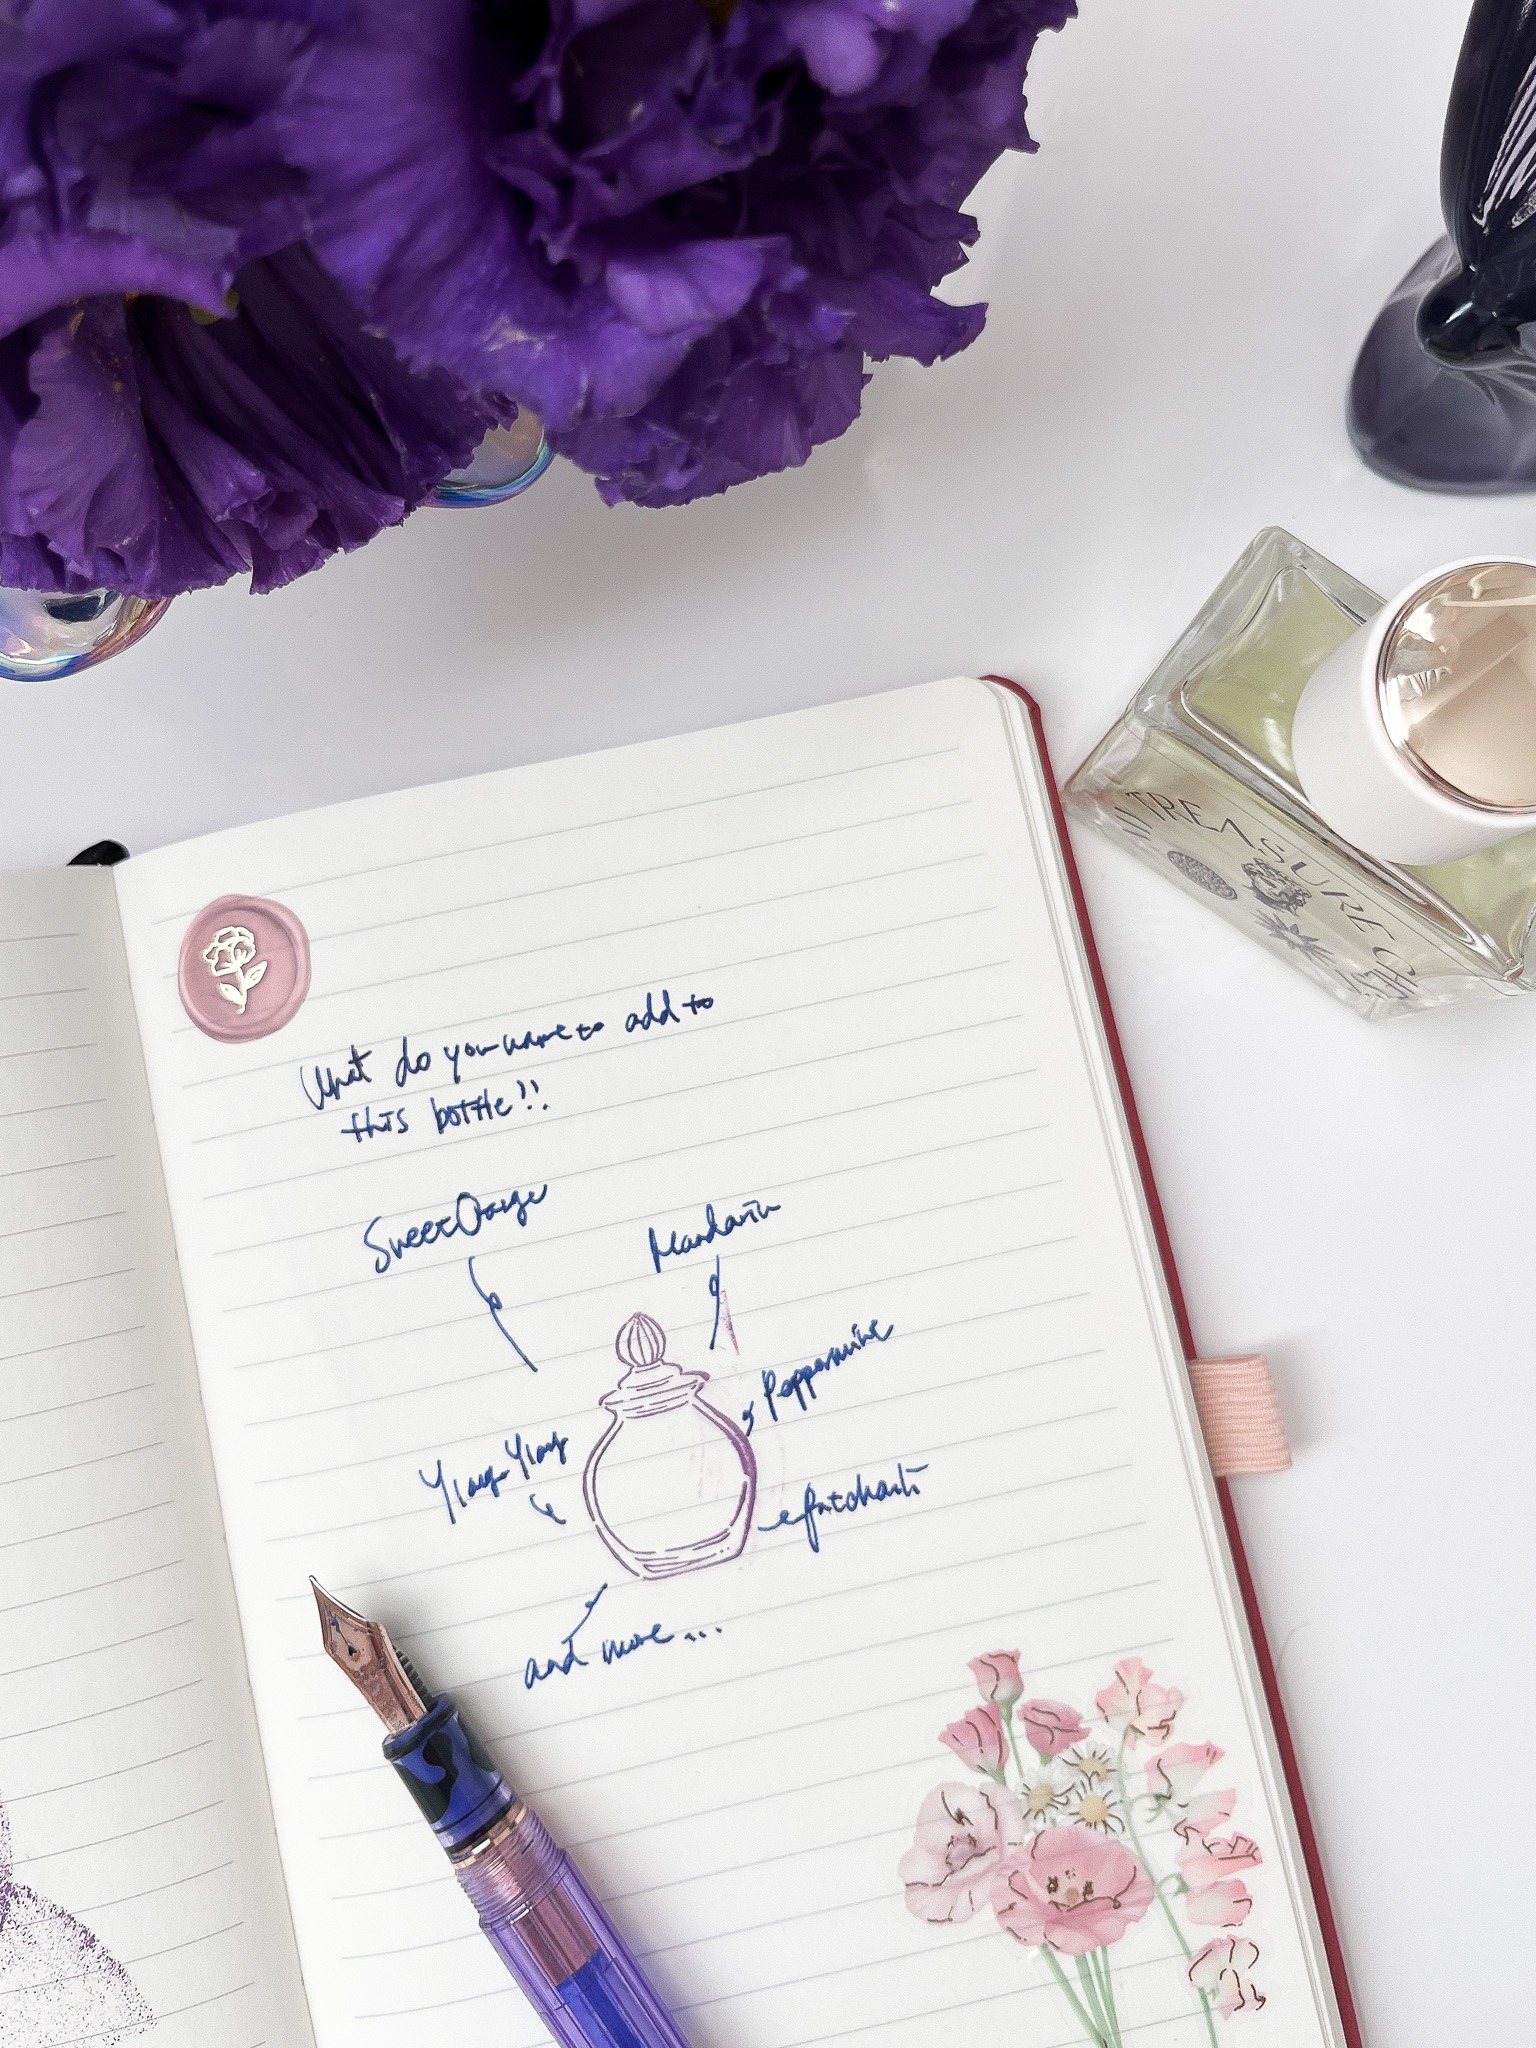 TREASURE
What do you want to add to
this bottle!!
Sweet Orange
Mandarin
Peppermint
Ylang-Ylang
Patchouli
and more...